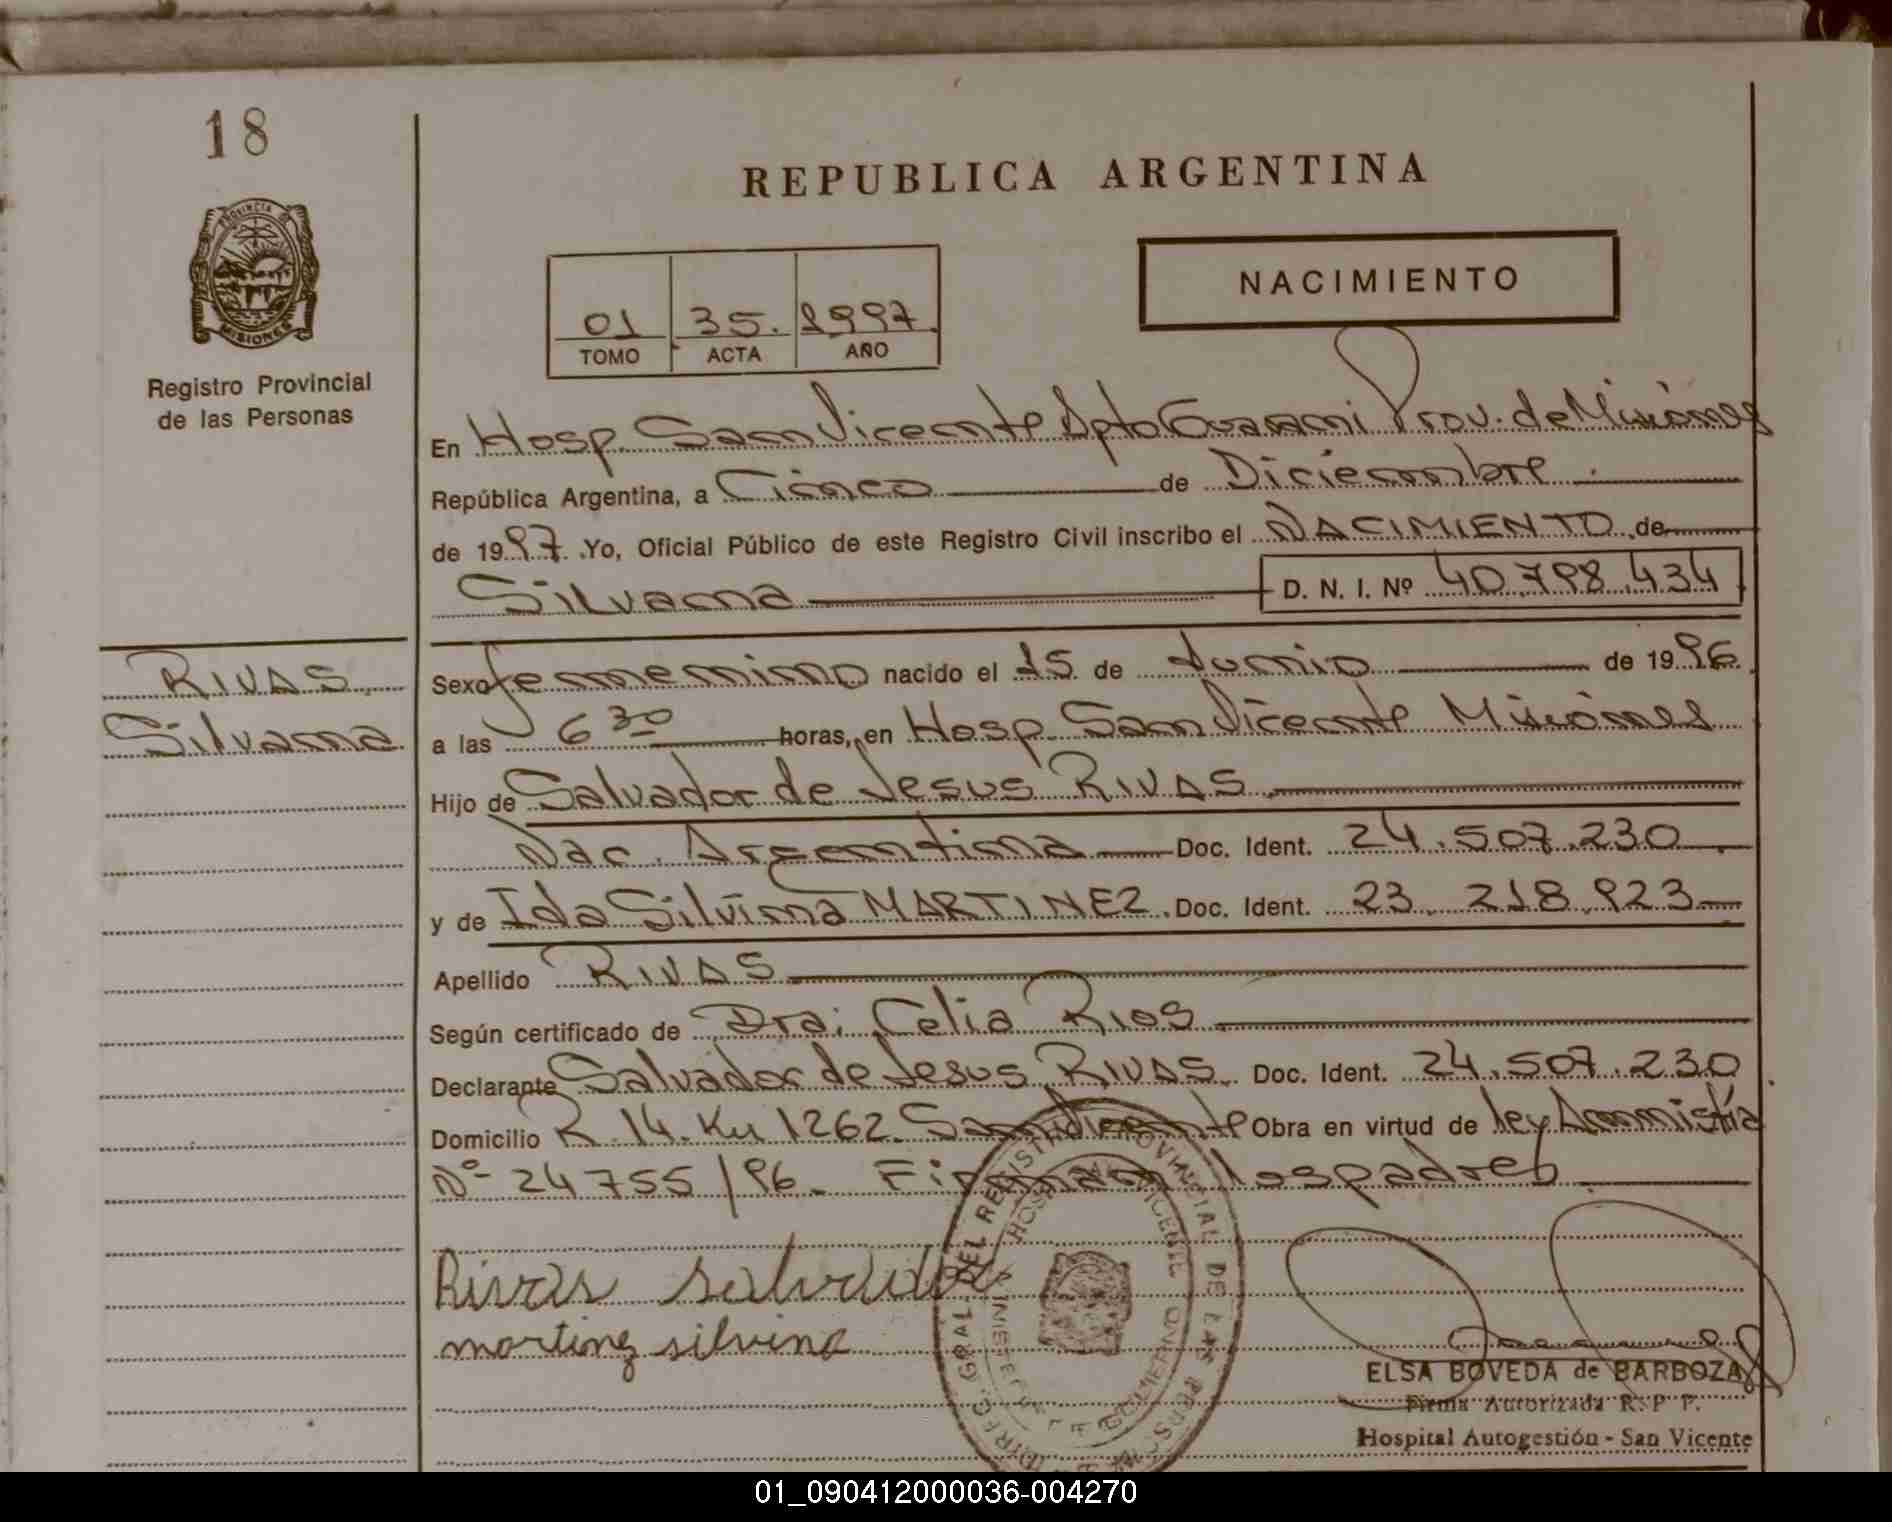 18
PROVINCIA DE
MISIONES
Registro Provincial
de las Personas
REPUBLICA ARGENTINA
01 35. 1997.
TOMO ACTA AÑO
NACIMIENTO
En Hosp. San Vicente Dpto Guarani Prov. de Misiones
República Argentina, a Cinco de Diciembre.
de 1997. Yo, Oficial Público de este Registro Civil inscribo el NACIMIENTO de
Silvana D. N. I. Nº 40.798.434
RIVAS
Silvana
Sexo femenino nacido el 15 de Junio de 1996.
a las 6 30 horas, en Hosp. San Vicente Misiones
Hijo de Salvador de Jesus RIVAS.
Nac. Argentina Doc. Ident. 24.507.230
y de Ida Silvina MARTINEZ. Doc. Ident. 23.218.923
Apellido RIVAS
Según certificado de Dra. Celia Rios
Declarante Salvador de Jesus RIVAS. Doc. Ident. 24.507.230
Domicilio R. 14. Km 1262. San Vicente Obra en virtud de ley Amnistía
Nº 24755/96. Firman los padres.
Rivas salvador
martinez silvina
DIREC. GRAL. DEL REGISTRO PROVINCIAL DE LAS PERSONAS
ELSA BOVEDA de BARBOZA
Firma Autorizada R. P. P.
Hospital Autogestión - San Vicente
01_090412000036-004270